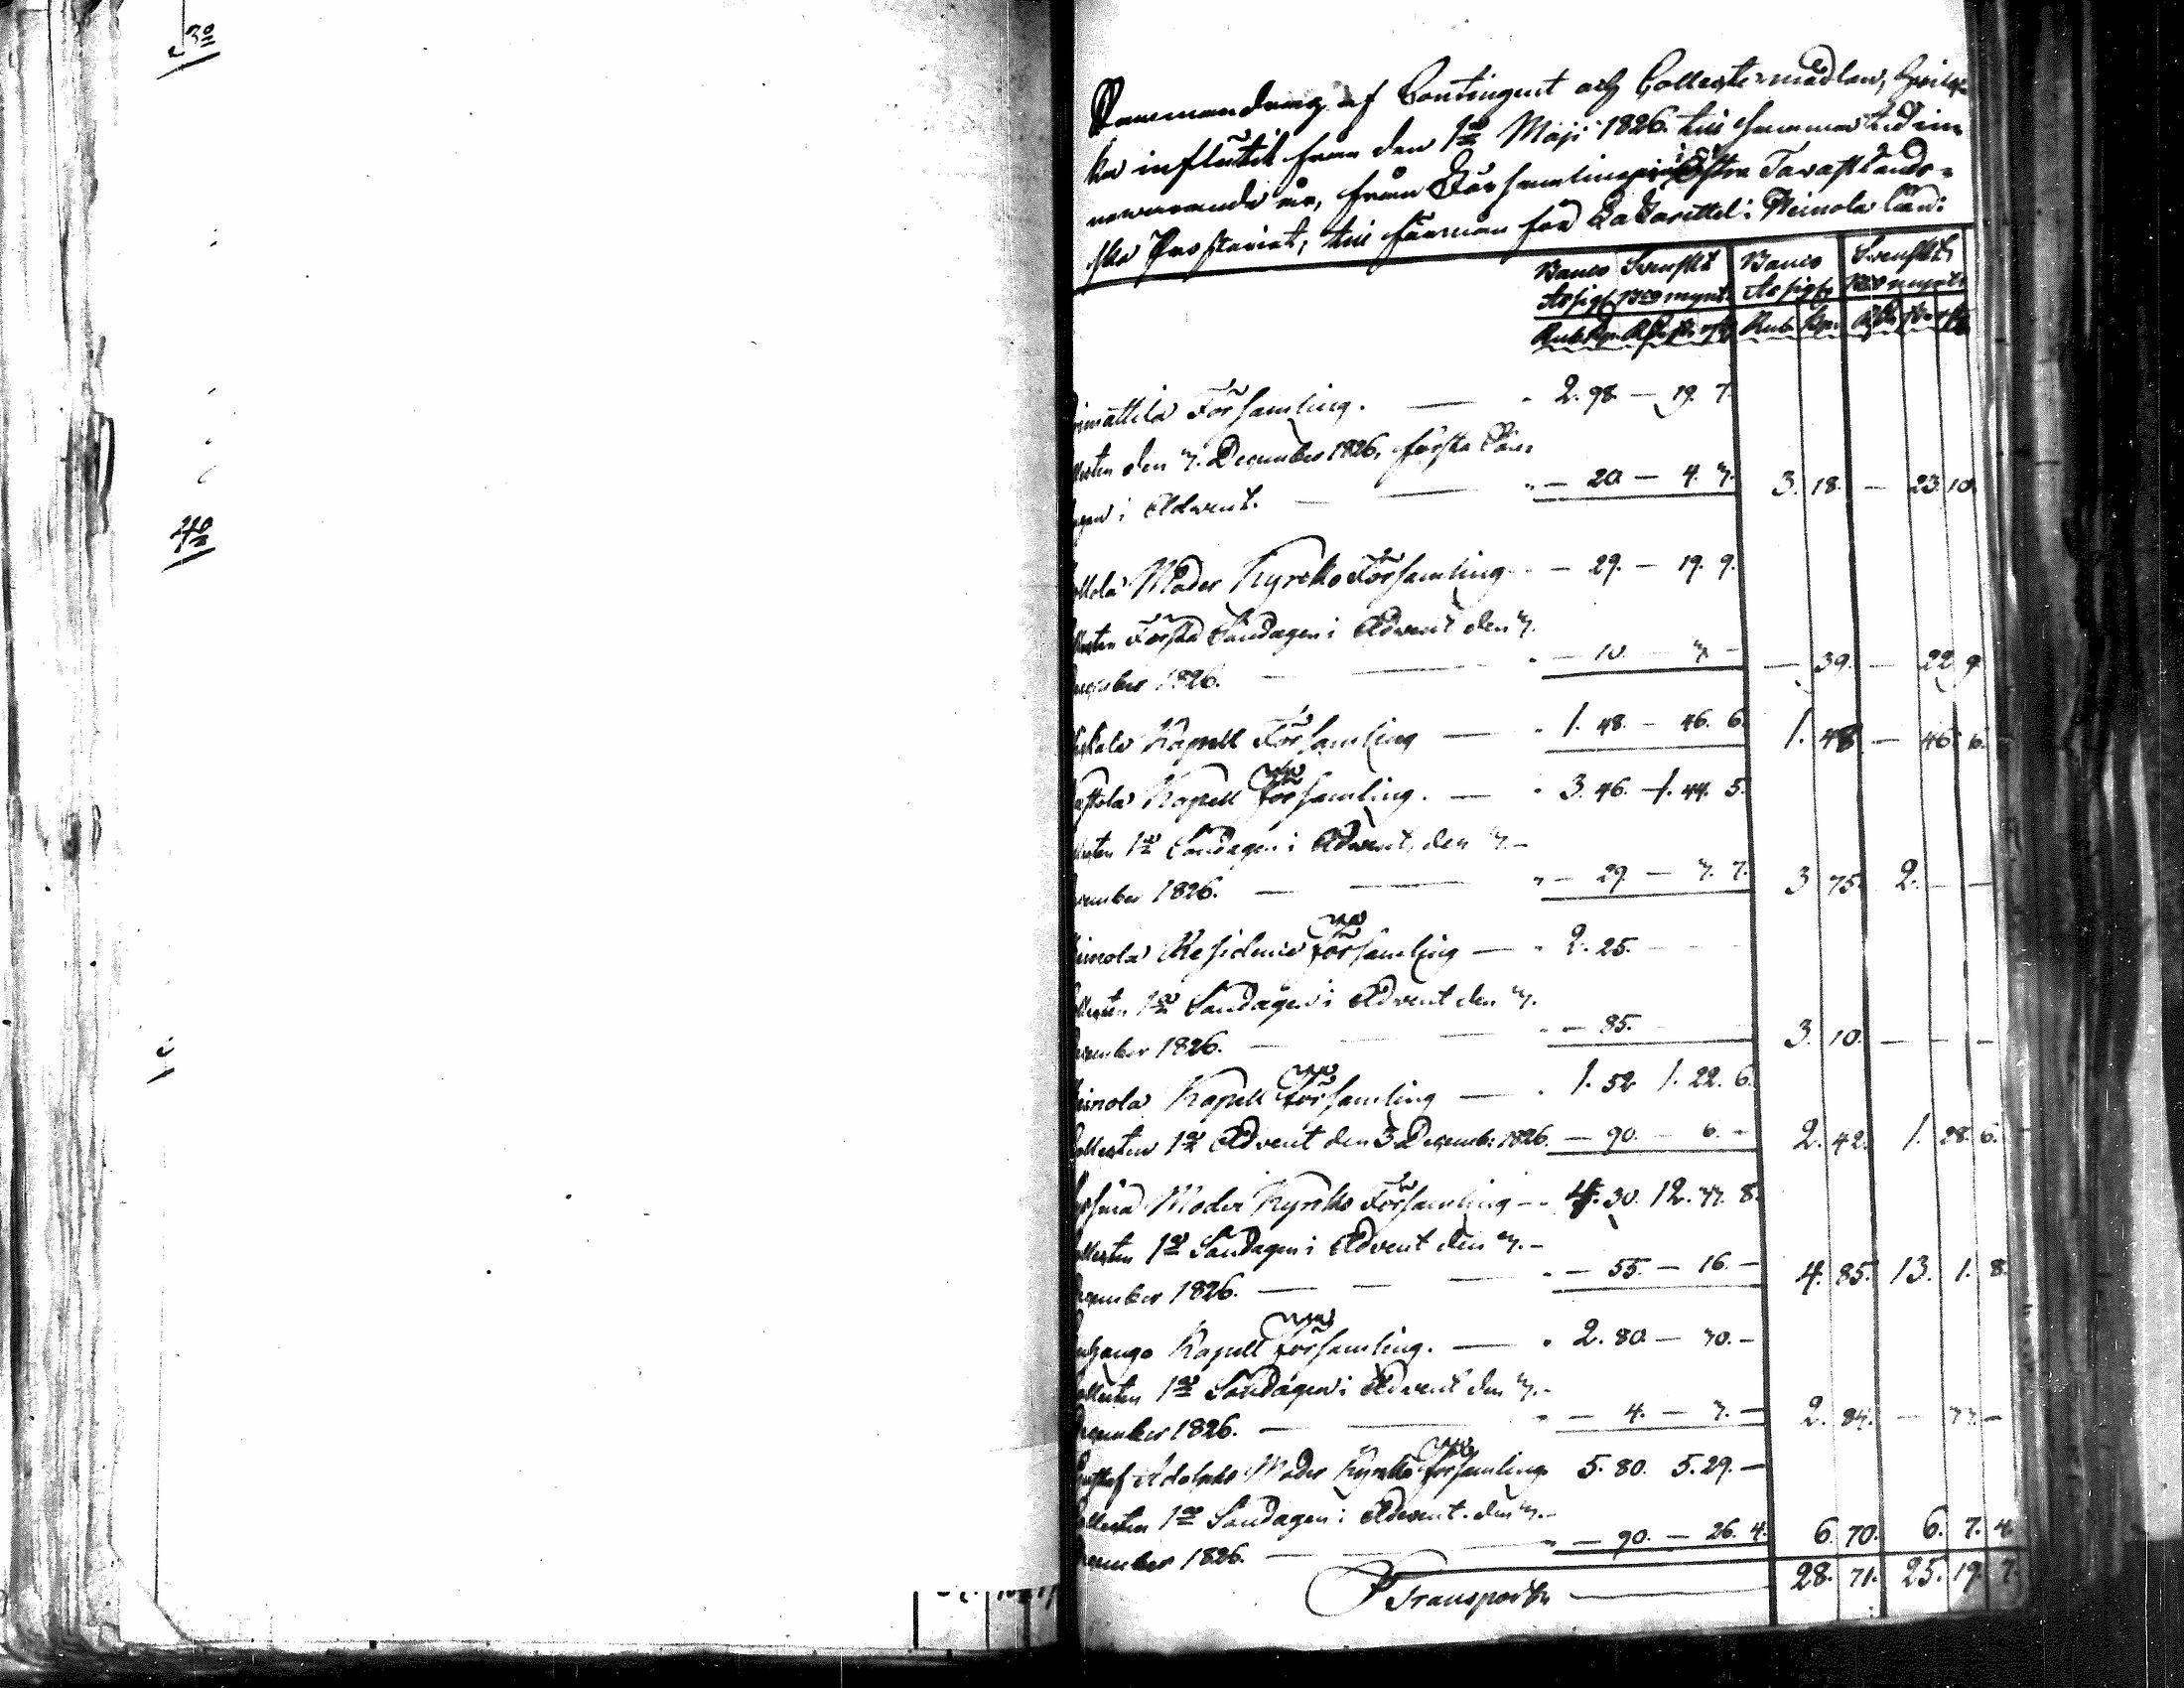 3o
4o
Sammandrag af Contingent och Collecte-medlen, hvilka
ha influtit från den 1sta Maji 1826. till samma tid in-
newarande år, från Församlingarne i Östra Tavastlands-
ska Prosteriet, till förmån för Lazarettet i Heinola län:
Banco Svenskt Banco Svenskt
Assig. Bco mynt. Assig. Bco mynt.
Rub. Kp. Rd. sk. rst. Rub. Kp. Rd. sk. rst.
imattila Församling. — 2. 98 — 19. 7.
llecten den 3. December 1826, första Sön-
agen i Advent. — — 20 — 4. 3. 3. 18. — 23. 10.
ollola Moder Kyrko Församling — 29. — 19. 9.
llecten Första Söndagen i Advent den 3.
ecember 1826. — — 10. — 3. — — 39. — 22. 9.
Kapell Församling — 1. 48. — 46. 6. 1. 48. — 46. 6.
astola Kapell Församling. — 3. 46. — 1. 44. 5.
llecten 1sta Söndagen i Advent, den 3. —
ecember 1826. — — 29. — 3. 7. 3. 75. 2. — —
einola Residence Församling — 2. 25. —
llecten 1sta Söndagen i Advent den 3.
ecember 1826. — — 85. 3. 10. — — —
einola Kapell Församling — 1. 52. 1. 22. 6.
ollecten 1sta Advent den 3 Decemb: 1826. — 90. — 6. — 2. 42. 1. 28. 6.
Moder Kyrko Församling — 4. 30. 12. 33. 8.
ollecten 1sta Söndagen i Advent den 3. —
ecember 1826. — — 55. — 16. — 4. 85. 13. 1. 8.
Kapell Församling. — 2. 80. — 30. —
ollecten 1sta Söndagen i Advent den 3. —
ecember 1826. — — 4. — 3. — 2. 84. — 33. —
ustaf Adolphs Moder Kyrko Församling 5. 80. 5. 29. —
ollecten 1sta Söndagen i Advent. den 3. —
ecember 1826. — — 90. — 26. 4. 6. 70. 6. 7. 4.
Transport — 28. 71. 25. 19. 7.